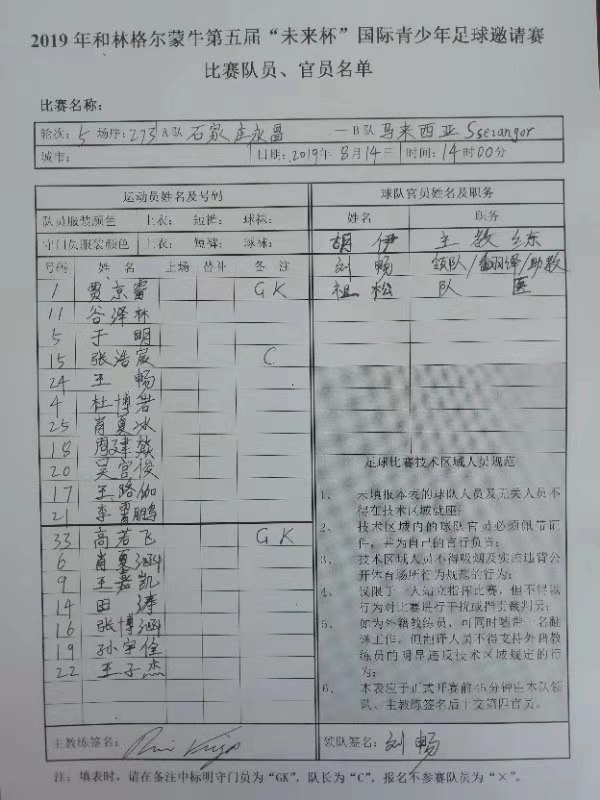 2019 年和林格尔蒙牛第五届“未来杯”国际青少年足球邀请赛
比赛队员、官员名单
比赛名称：
轮次：5 场序：273 A队 石家庄永昌 — B队 马来西亚 Sserangor
城市： 日期：2019年8月14日 时间：14时00分
运动员姓名及号码
队员服装颜色 上衣： 短裤： 球袜：
守门员服装颜色 上衣： 短裤： 球袜：
号码 姓名 上场 替补 备注
1 贾京睿 GK
11 谷泽林
5 于明
15 张浩宸 C
24 王畅
4 杜博若
25 肖夏冰
18 周建
20 吴宫俊
17 王路伽
21 李雷鹏
33 高若飞 GK
6 肖夏涵
9 王嘉凯
14 田涛
16 张博涵
19 孙宇佳
22 王子杰
主教练签名：
球队官员姓名及职务
姓名 职务
胡伊 主教练
刘畅 领队/翻译/助教
祖松 队医
足球比赛技术区域人员规范
1、 未填报本表的球队人员及无关人员不
得在技术区域就座；
2、 技术区域内的球队官员必须佩带证
件，并为自己的言行负责；
3、 技术区域人员不得吸烟及实施违背公
开体育场所行为规范的行为；
4、 仅限于一人站立指挥比赛，但不得以
行为对比赛进行干扰或指责裁判员；
5、 如为外籍教练员，可同时随带一名翻
译工作，但翻译人员不得支持外籍教
练员的明显违反技术区域规定的行
为；
6、 本表应于正式开赛前45分钟由本队领
队、主教练签名后上交第四官员。
领队签名：刘畅
注：填表时，请在备注中标明守门员为“GK”，队长为“C”，报名不参赛队员为“×”。